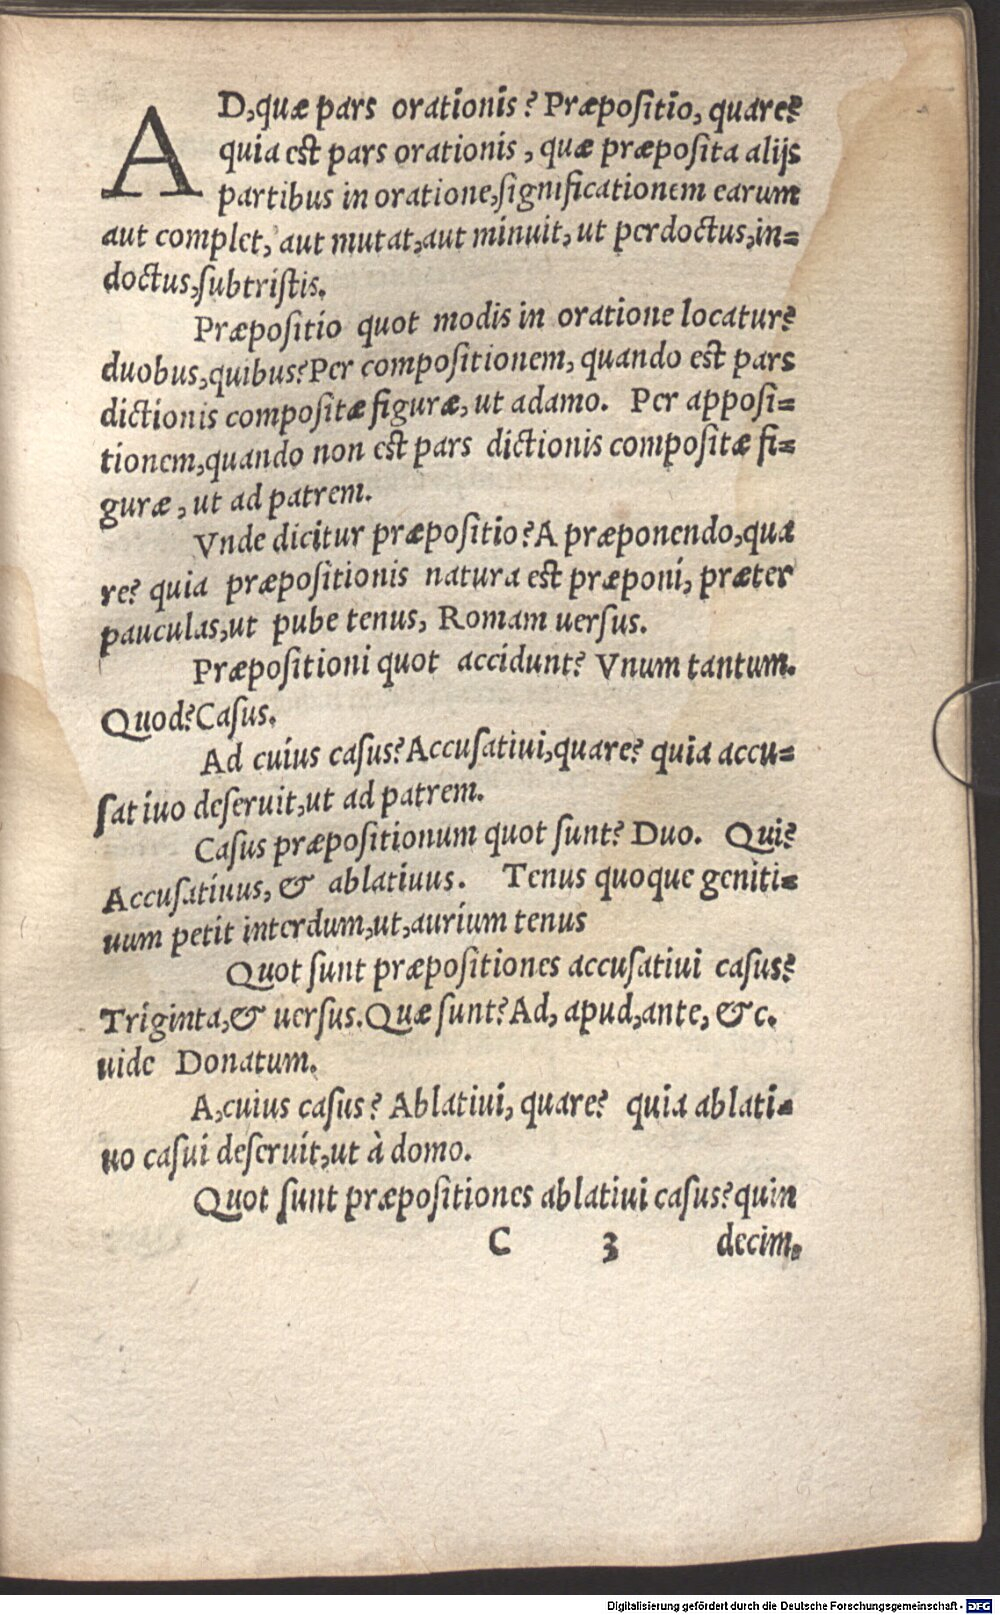 AD, quæ pars orationis? Præpositio, quare?
quia est pars orationis, quæ præposita alijs
partibus in oratione, significationem earum
aut complet, aut mutat, aut minuit, ut perdoctus, in=
doctus, subtristis.
Præpositio quot modis in oratione locatur?
duobus, quibus? Per compositionem, quando est pars
dictionis compositæ figuræ, ut adamo. Per apposi=
tionem, quando non est pars dictionis compositæ fi=
guræ, ut ad patrem.
Vnde dicitur præpositio? A præponendo, qua
re? quia præpositionis natura est præponi, præter
pauculas, ut pube tenus, Romam uersus.
Præpositioni quot accidunt? Vnum tantum.
Quod? Casus.
Ad cuius casus? Accusatiui, quare? quia accu=
satiuo deseruit, ut ad patrem.
Casus præpositionum quot sunt? Duo. Qui?
Accusatiuus, & ablatiuus. Tenus quoque geniti=
uum petit interdum, ut, aurium tenus
Quot sunt præpositiones accusatiui casus?
Triginta, & uersus. Quæ sunt? Ad, apud, ante, &c.
uide Donatum.
A, cuius casus? Ablatiui, quare? quia ablati=
uo casui deseruit, ut à domo.
Quot sunt præpositiones ablatiui casus? quin
C 3 decim.
Digitalisierung gefördert durch die Deutsche Forschungsgemeinschaft - DFG